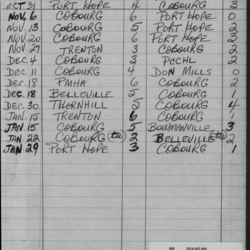 OCT 31 PORT HOPE 4 COBOURG 3
NOV. 6 COBOURG PORT HOPE 0
NOV. 13 COBOURG 5 COBOURG 2
NOV. 20 COBOURG 6 PORT HOPE
NOV. 27 TRENTON 3 COBOURG 2
DEC. 4 COBOURG PCCHL 2
DEC. 11 COBOURG 4 DON MILLS 0
DEC. 18 PMHA 6 COBOURG
DEC. 18 BELLEVILLE 5 COBOURG 1
DEC. 30 THORNHILL 5 COBOURG 4
JAN. 15 TRENTON 6 COBOURG 1
JAN 15 COBOURG 5 BOWMANVILLE 3
JAN 22 COBOURG (tie) 2 BELLEVILLE (tie) 2
JAN 29 PORT HOPE 3 COBOURG 1